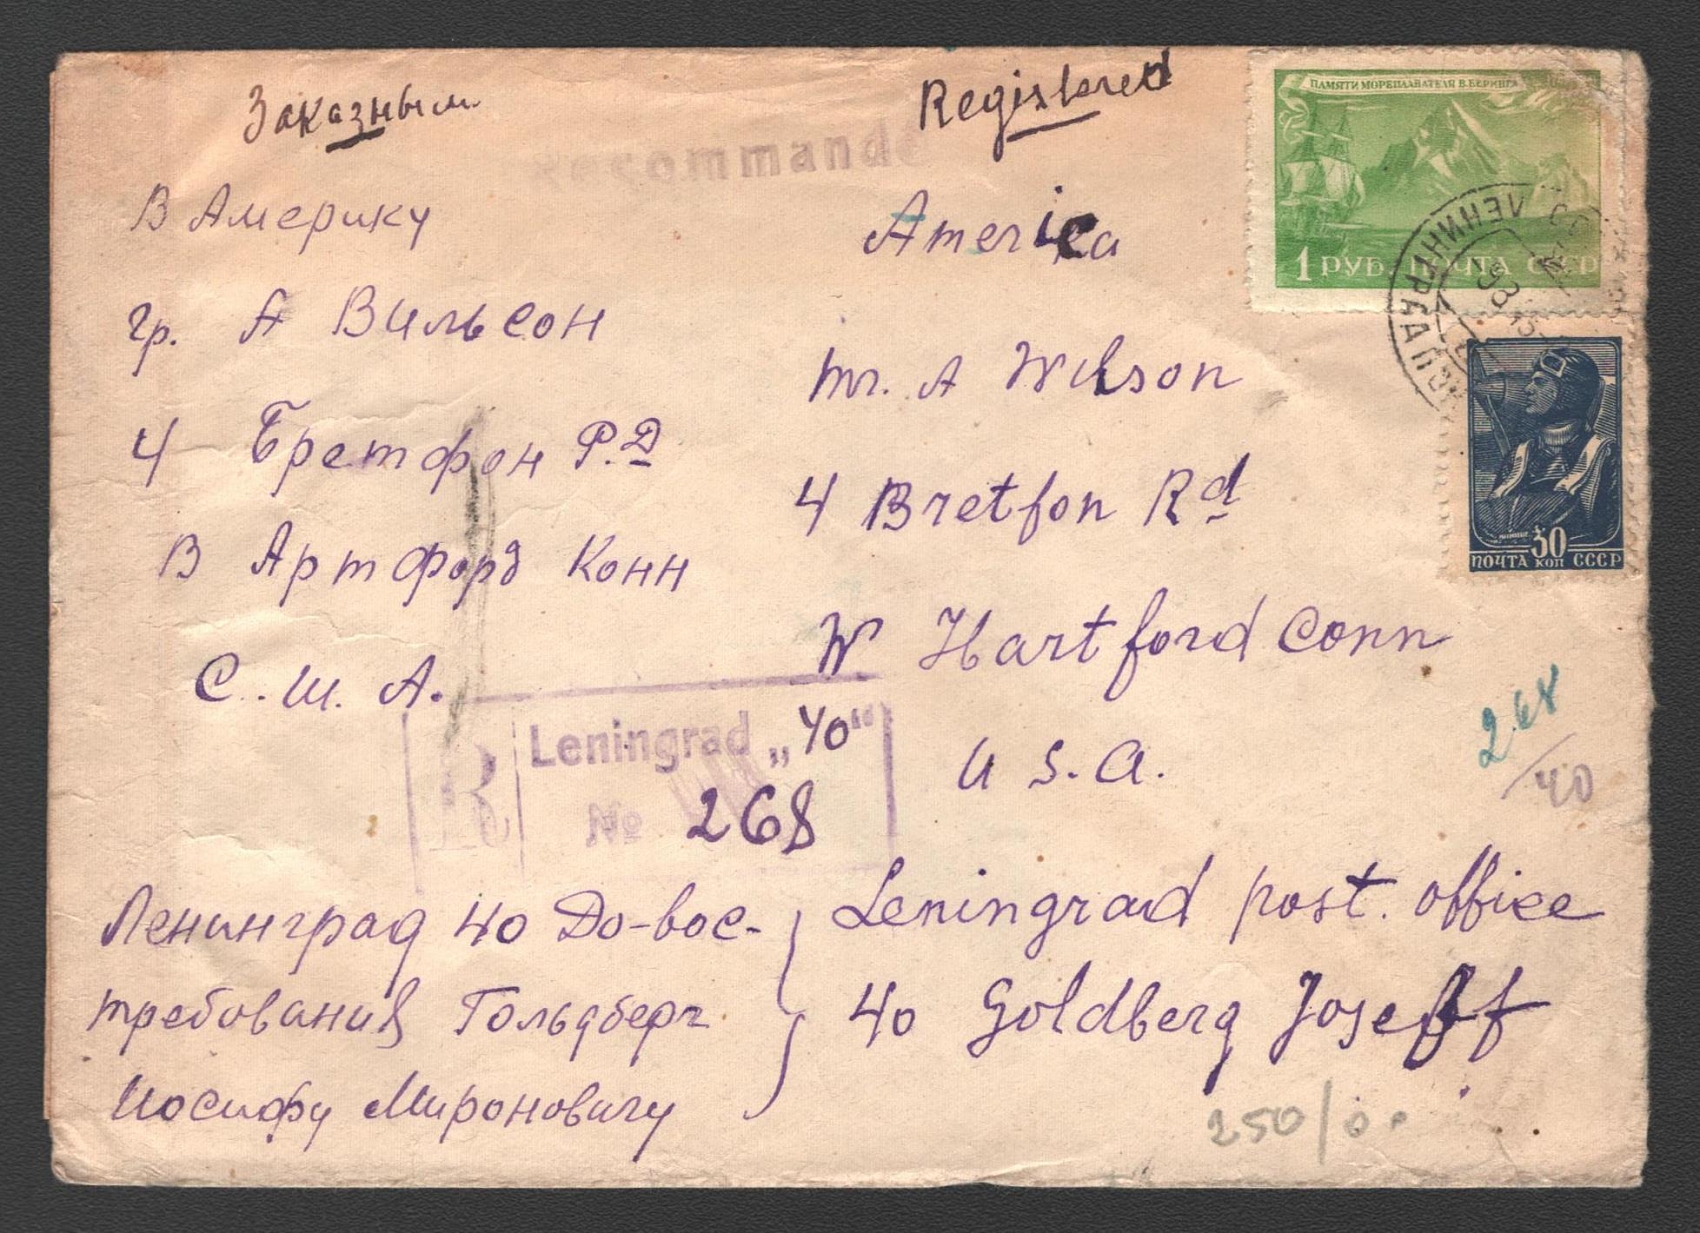 Заказным
Registered
Recommandé
ПАМЯТИ МОРЕПЛАВАТЕЛЯ В. БЕРИНГА
1 РУБ. ПОЧТА СССР
ЛЕНИНГРАД
30
ПОЧТА КОП СССР
В Америку
гр. А Вильсон
4 Бретфон Р.Д
В Артфорд Конн
С. Ш. А.
America
mr. A Wilson
4 Bretfon Rd
W Hartford Conn
U S. A.
R
Leningrad „40“
№ 268
268
/40
Ленинград 40 До-вос-
требования Гольдберг
Иосифу Мироновичу
Leningrad post. office
40 Goldberg Joseff
250/00